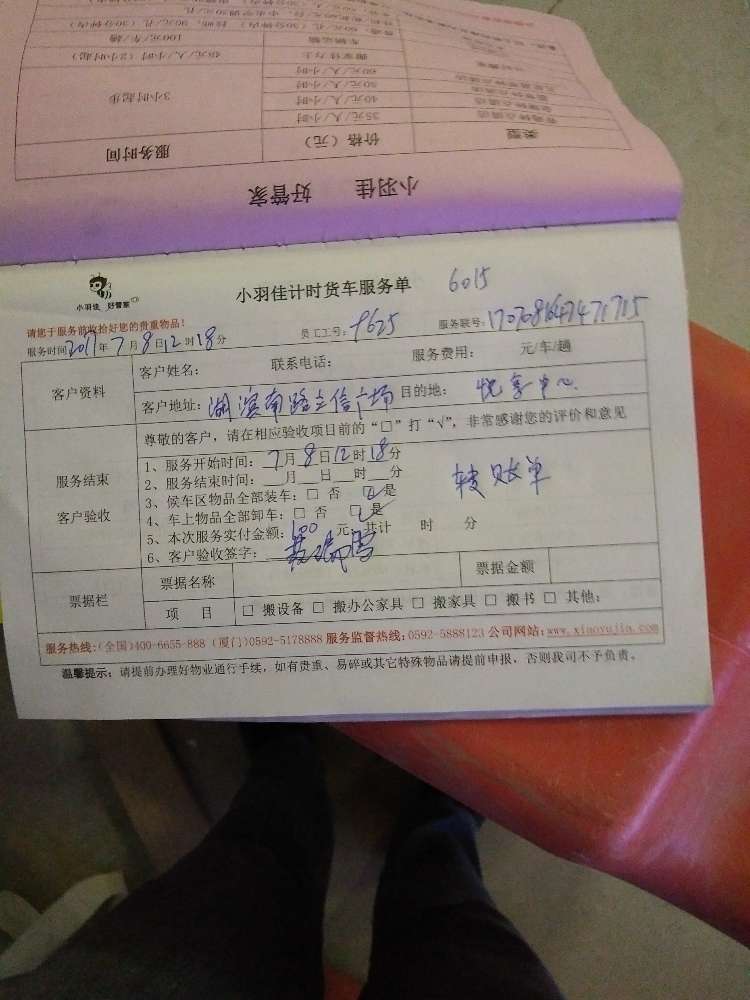 普通：60元/孔（30分钟内）
100元/车/趟
车辆运输
45元/人/小时（2小时起）
搬家壮力士
60元/人/小时
50元/人/小时
40元/人/小时
35元/人/小时
3小时起步
类型 价格（元） 服务时间
小羽佳 好管家
小羽佳 好管家
小羽佳计时货车服务单 6015
请您于服务前收拾好您的贵重物品！
服务时间2017年7月8日12时18分 员工工号：9625 服务联号：
客户资料
客户姓名： 联系电话： 服务费用： 元/车/趟
客户地址：湖滨南路立信广场 目的地：悦享中心
服务结束 客户验收
尊敬的客户，请在相应验收项目前的“□”打“√”，非常感谢您的评价和意见
1、服务开始时间：7月8日12时18分
2、服务结束时间：__月__日__时__分
3、候车区物品全部装车：□ 否 ☑是
4、车上物品全部卸车：□ 否 ☑是
转账单
5、本次服务实付金额：100元，共计 时 分
6、客户验收签字：
票据栏
票据名称 票据金额
项 目 □ 搬设备 □ 搬办公家具 □ 搬家具 □ 搬书 □ 其他：
服务热线：(全国)400-6655-888 (厦门)0592-5178888 服务监督热线：0592-5888123 公司网站：www.xiaoyujia.com
温馨提示：请提前办理好物业通行手续，如有贵重、易碎或其它特殊物品请提前申报，否则我司不予负责。